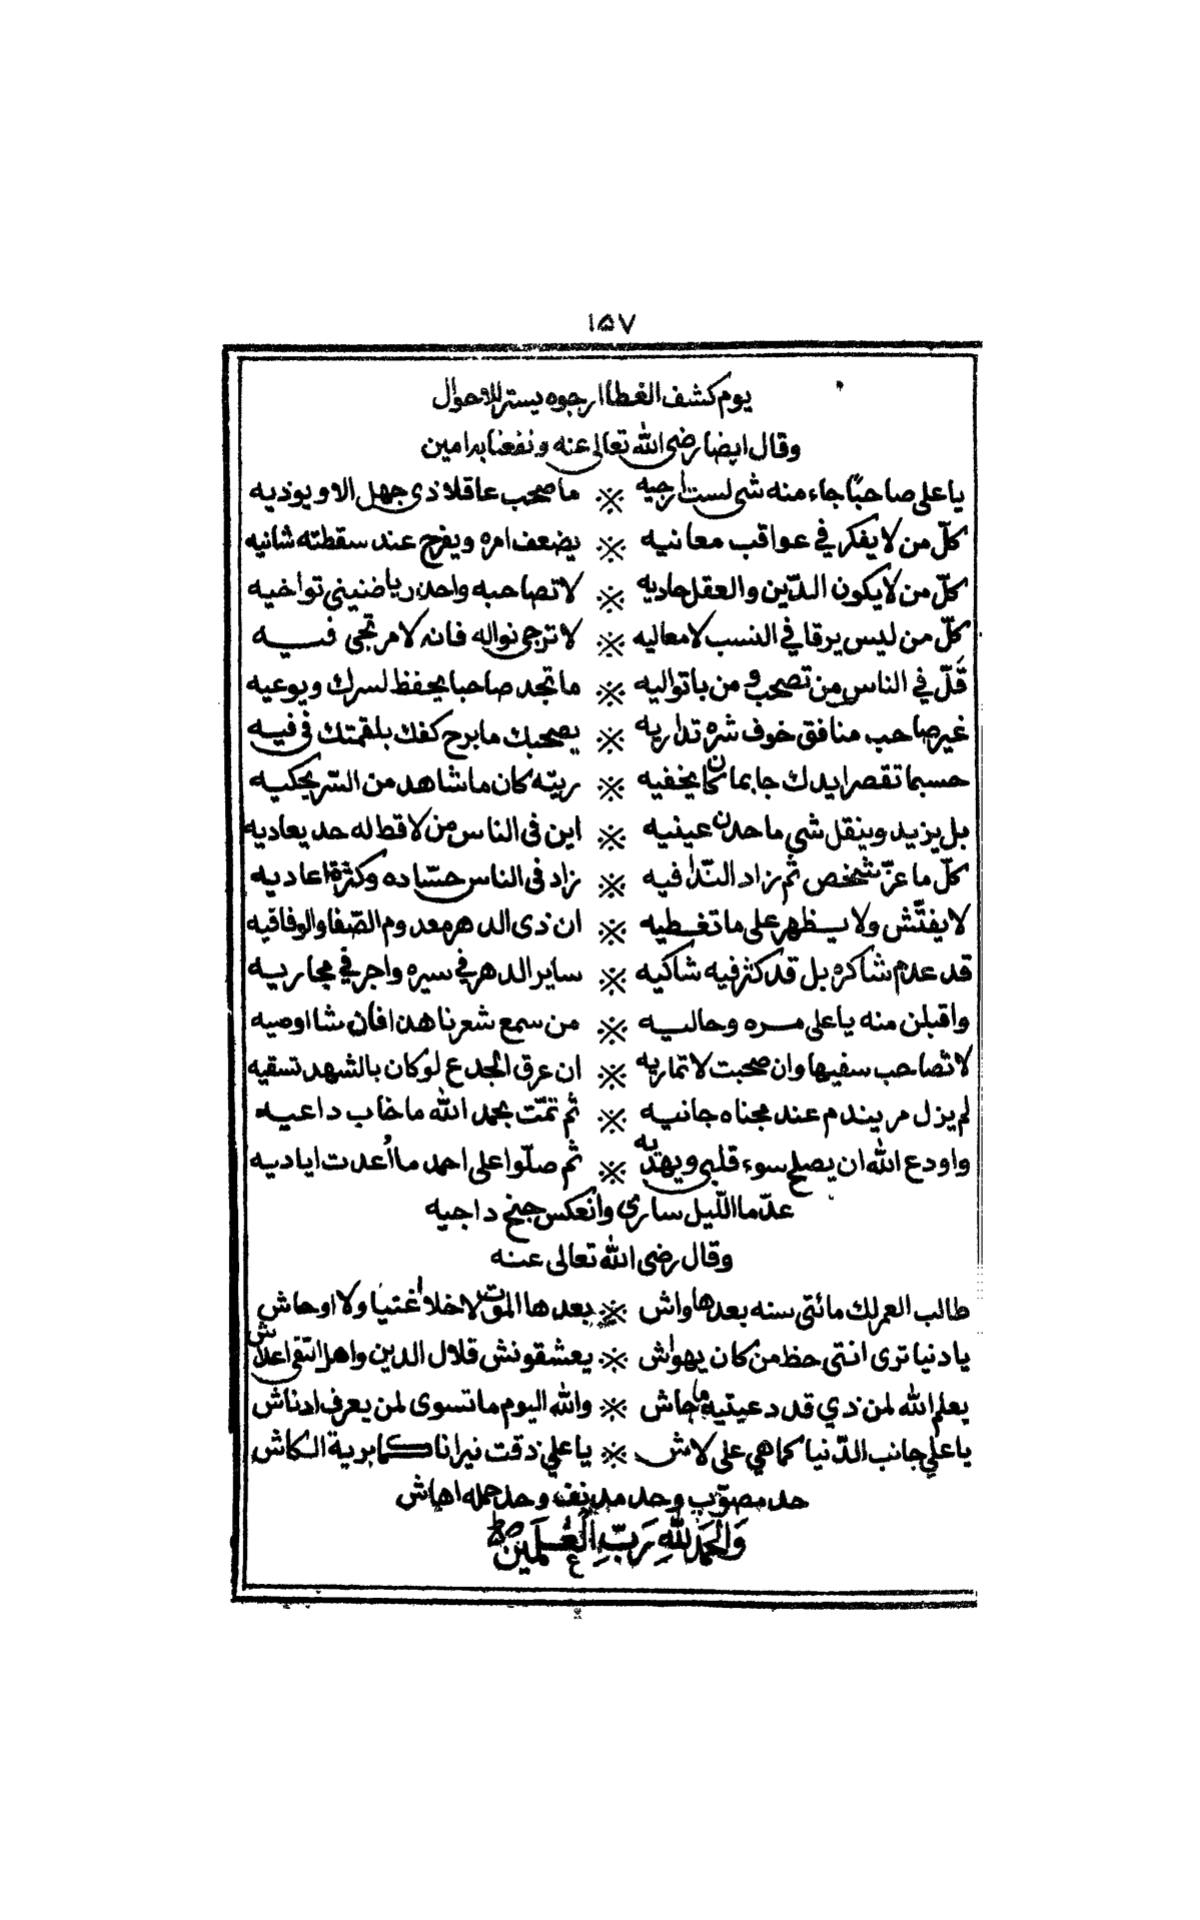 ١٥٧
يوم كشف الغطا ارجوه يستر للاحوال
وقال ايضا رضى الله تعالى عنه ونفعنا به امين
يا على صاحبًا جاء منه شى لست ارجيه ※ ما صحب عاقلا ذى جهل الا ويوذيه
كلّ من لا يفكر في عواقب معانيه ※ يضعف امره ويفرح عند سقطته شانيه
كلّ من لا يكون الدّين والعقل حاديه ※ لا تصاحبه واحذر يا ضنيني تواخيه
كلّ من ليس يرقا في النسب لا معاليه ※ لا ترجى نواله فانه لا مرتجى فيه
قلّ في الناس من تصحب و من با تواليه ※ ما تجد صاحبا يحفظ لسرك ويوعيه
غير صاحب منافق خوف شره تداريه ※ يصحبك ما برح كفك بلقمتك في فيه
حسبما تقصر ايدك جا بما كان يخفيه ※ ريته كان ما شاهد من السّر يحكيه
بل يزيد وينقل شي ما حدن عينيه ※ اين فى الناس من لا قط له حد يعاديه
كلّ ما عزّ شخص ثم زاد الندا فيه ※ زاد فى الناس حسّاده وكثرة اعاديه
لا يفتّش ولا يظهر على ما تغطيه ※ ان ذى الدهر معدوم الصّفا والوفا فيه
قد عدم شاكره بل قد كثر فيه شاكيه ※ ساير الدهر في سيره واجر في مجاريه
واقبلن منه يا على مره وحاليه ※ من سمع شعرنا هذا فان شا اوصيه
لا تصاحب سفيها وان صحبت لا تماريه ※ ان عرق الجدع لو كان بالشهد تسقيه
لم يزل مر يندم عند مجناه جانيه ※ ثم تمّت بحمد الله ما خاب داعيه
واودع الله ان يصلح سوء قلبي ويهديه ※ ثم صلّوا على احمد ما اُعدت اياديه
عدّ ما اللّيل سارى وانعكس جنح داجيه
وقال رضى الله تعالى عنه
طالب العمر لك مائتى سنه بعدها واش ※ بعدها الموت لا خلا اغنيا ولا اوحاش
يا دنيا ترى انتى حظ من كان يهواش ※ يعشقونش قلال الدين واهل التقى اعداش
يعلم الله لمن ذي قد دعيتيه ما جاش ※ والله اليوم ما تسوى لمن يعرف ادناش
يا علي جانب الدّنيا كما هي على لاش ※ يا علي ذقت نيرانا كما برية الكاش
حد مصوّب وحد مدنف وحد جمله اهاش
وَالْحَمْدُ لِلّٰهِ رَبِّ الْعٰلَمِيْن